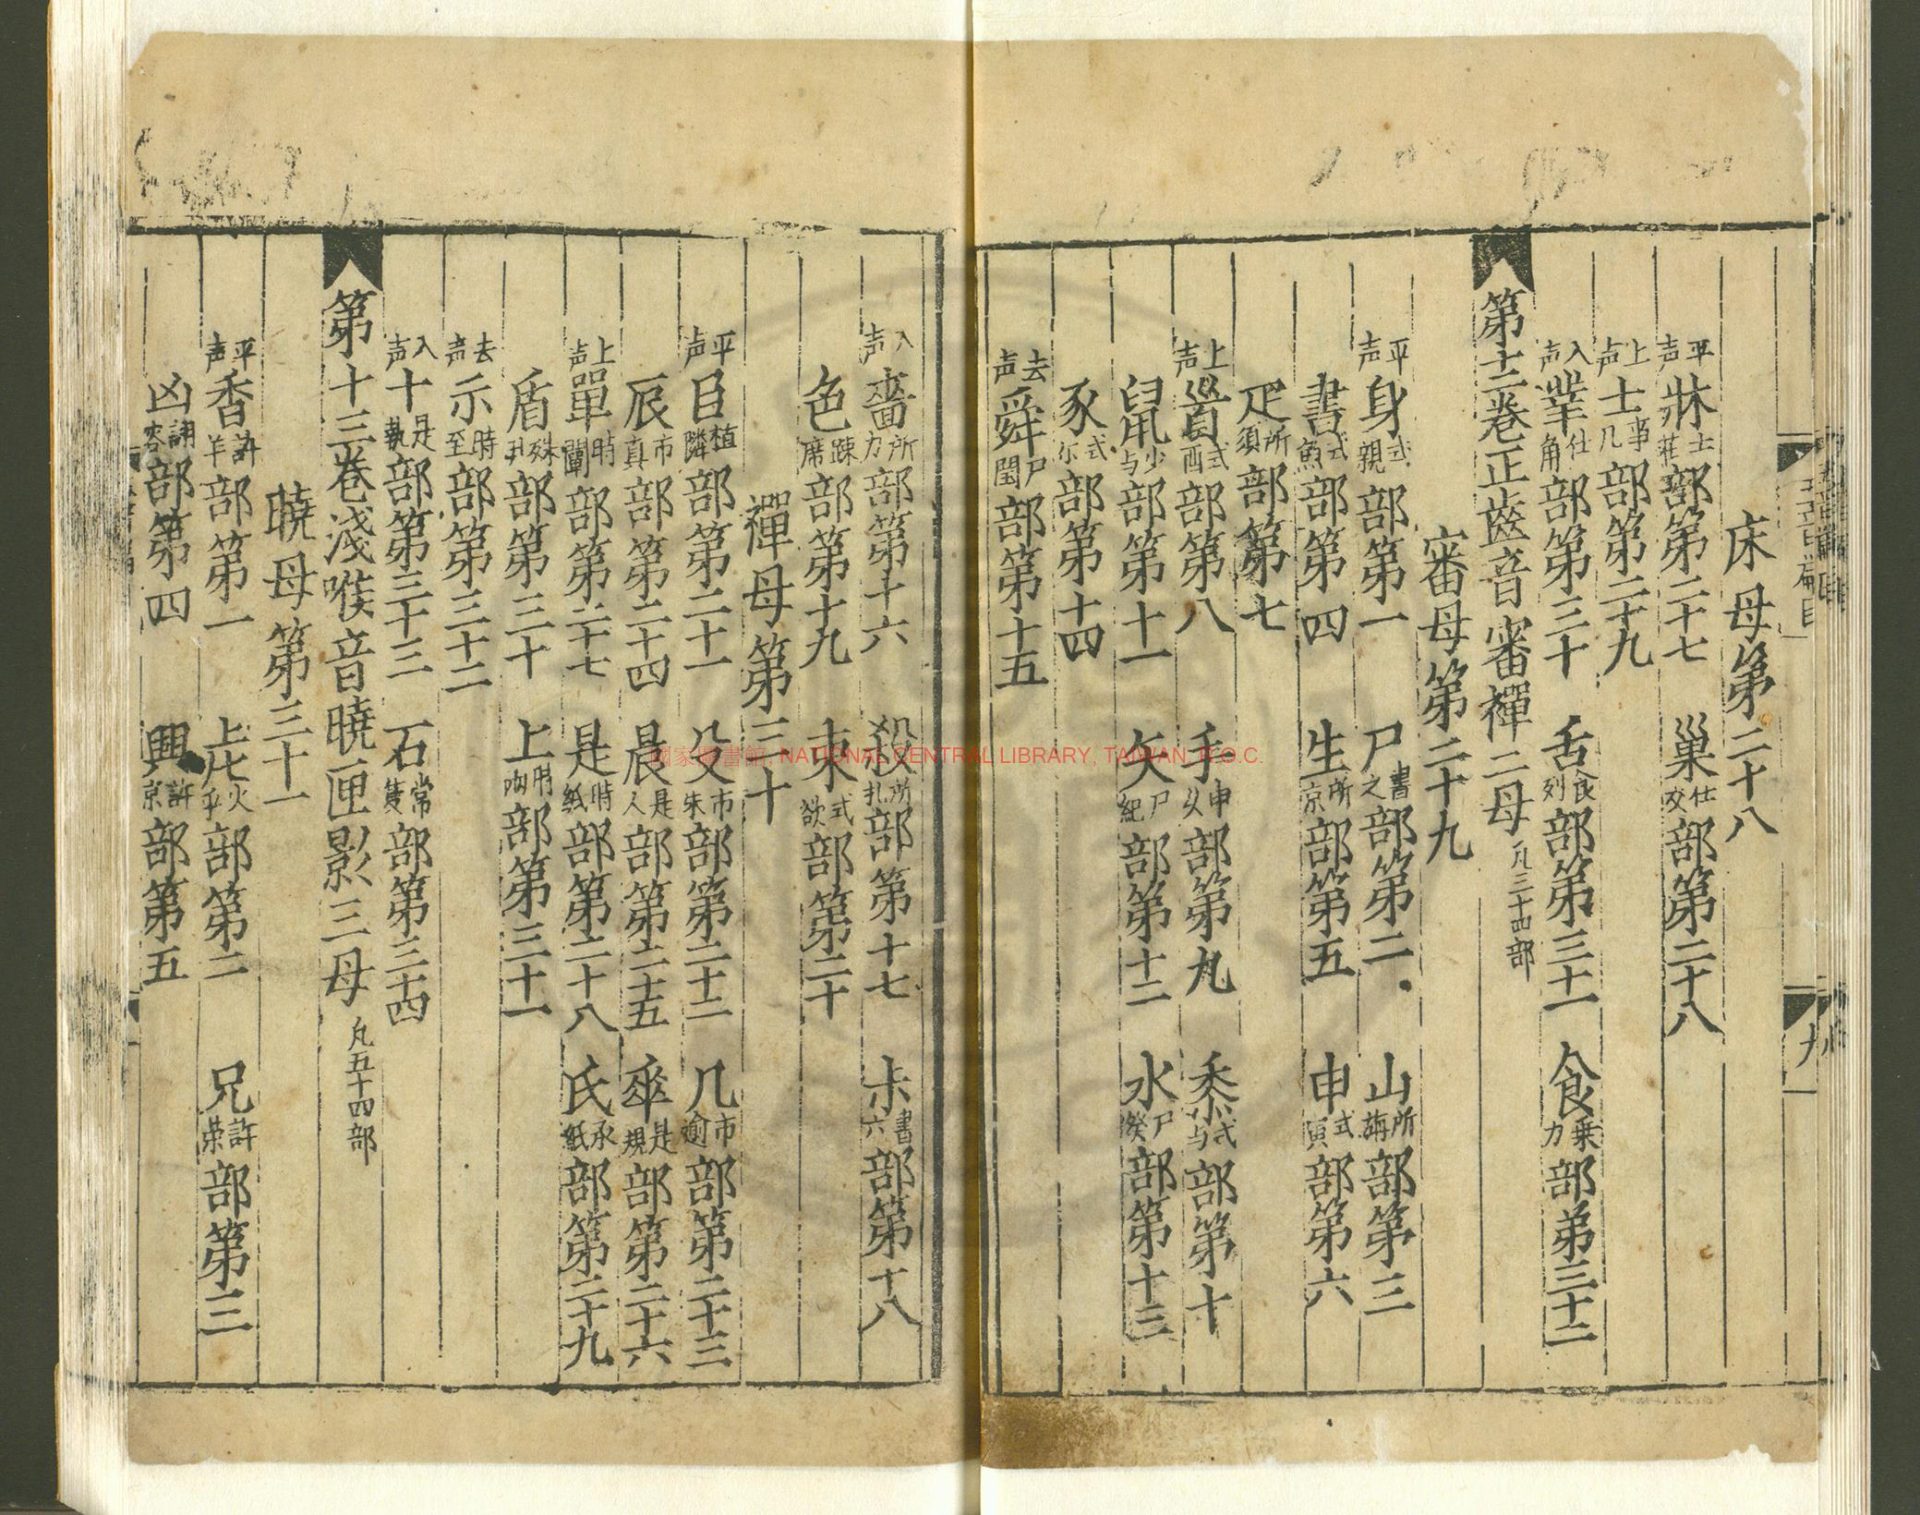 床母第二十八
平声牀士莊部第二十七 巢仕交部第二十八
上声士事几部第二十九
入声丵仕角部第三十 舌食列部第三十一 食乗力部弟三十二
第十二卷正齒音審禪二母凡三十四部
審母第二十九
平声身式親部第一 尸書之部第二 山所旃部第三
書式魚部第四 生所京部第五 申式寅部第六
疋所須部第七
上声𩠐式酉部第八 手申久部第九 黍式与部第十
鼠少与部第十一 矢尸紀部第十二 水尸癸部第十三
豕式尓部第十四
去声舜尸閏部第十五
入声嗇所力部第十六 殺所扎部第十七 尗書六部第十八
色踈席部第十九 束式欲部第二十
禪母第三十
平声臣植隣部第二十一 殳市朱部第二十二 几市逾部第二十三
辰市真部第二十四 晨是人部第二十五 𠂹是規部第二十六
上声單時闡部第二十七 是時紙部第二十八 氏承紙部第二十九
盾殊刋部第三十 上時啕部第三十一
去声示時至部第三十二
入声十是執部第三十三 石常隻部第三十四
第十三卷淺喉音曉匣影三母凡五十四部
曉母第三十一
平声香許羊部第一 虍火乎部第二 兄許荣部第三
凶詡容部第四 興許京部第五
九
國家圖書館, NATIONAL CENTRAL LIBRARY, TAIWAN, R.O.C.